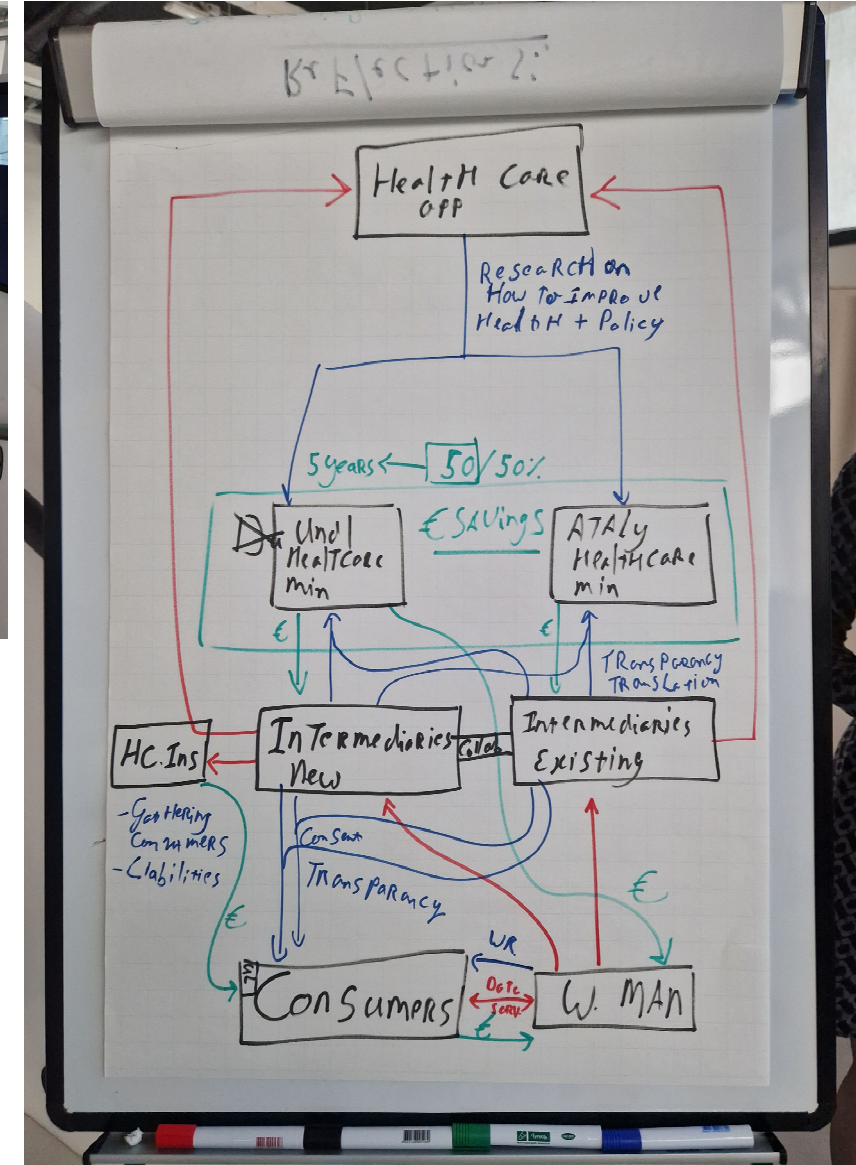 ReflectionS:
HealtH Care
app
ReseaRCH on
How To IMPRove
HealtH + Policy
5 years
50/50%
€ SAVings
UndI
HealTCare
min
ATAly
HealtHCare
min
€
€
TRansParancy
TRanslation
HC. Ins
InTermediaries
new
Collab
Intermediaries
Existing
- GatHering
ConsumeRs
- Liabilities
Consent
TRansParancy
€
€
WR
Data
Serv.
€
ConSumers
W. MAn